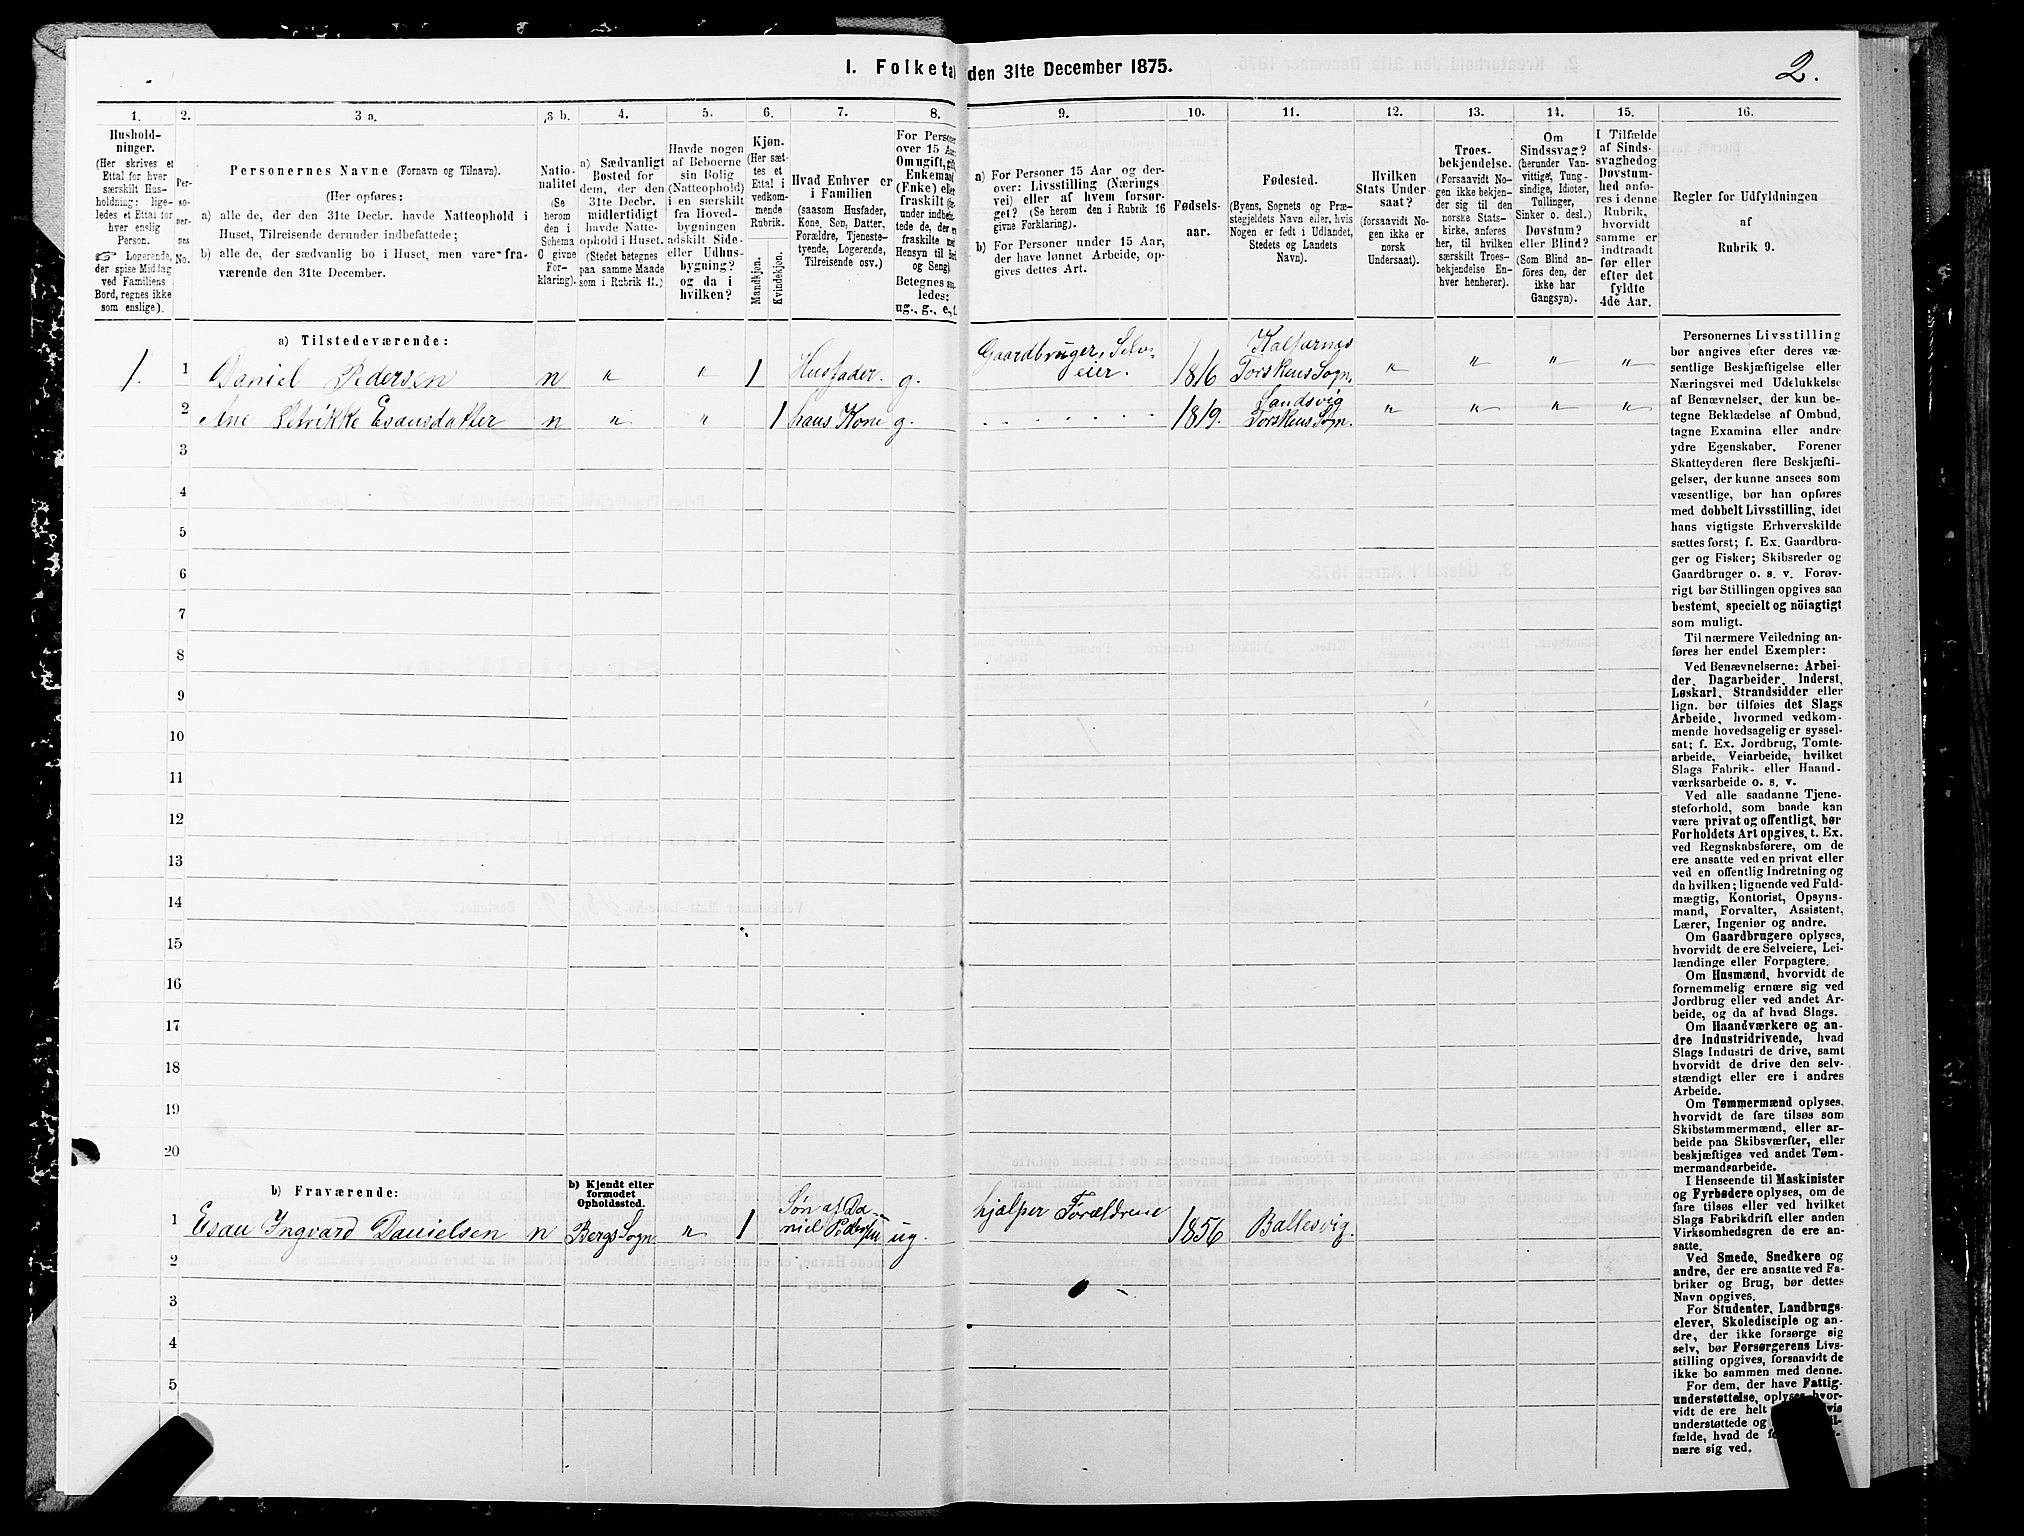 I. Folketal den 31te December 1875.
2.
1.
Hushold-
ninger.
(Her skrives et
Ettal for hver
særskilt Hus-
holdning; lige-
ledes et Ettal for
hver enslig
Person.
☞ Logerende,
der spise Middag
ved Familiens
Bord, regnes ikke
som enslige).
2.
Per-
so-
ner-
nes
No.
3 a.
Personernes Navne (Fornavn og Tilnavn).
(Her opføres:
a) alle de, der den 31te Decbr. havde Natteophold i
Huset, Tilreisende derunder indbefattede;
b) alle de, der sædvanlig bo i Huset, men vare fra-
værende den 31te December.
3 b.
Natio-
nalitet
(Se
herom
den i
Schema
C givne
For-
klaring).
4.
a) Sædvanligt
Bosted for
dem, der den
31te Decbr.
midlertidigt
havde Natte-
ophold i Huset.
(Stedet betegnes
paa samme Maade
som i Rubrik 11.)
5.
Havde nogen
af Beboerne
sin Bolig
(Natteophold)
i en særskilt
fra Hoved-
bygningen
adskilt Side-
eller Udhus-
bygning?
og da i
hvilken?
6.
Kjøn.
(Her sæt-
tes et
Ettal i
vedkom-
mende
Rubrik.
Mandkjøn.
Kvindekjøn.
7.
Hvad Enhver er
i Familien
(saasom Husfader,
Kone, Søn, Datter,
Forældre, Tjeneste-
tyende, Logerende,
Tilreisende osv.)
8.
For Personer
over 15 Aar:
Om ugift, gift,
Enkemand
(Enke) eller
fraskilt
Betegnes saa-
ledes:
ug., g., e., f.
9.
a) For Personer 15 Aar og der-
over: Livsstilling (Nærings-
vei) eller af hvem forsør-
get? (Se herom den i Rubrik 16
givne Forklaring).
b) For Personer under 15 Aar,
der have lønnet Arbeide, op-
gives dettes Art.
10.
Fødsels-
aar.
11.
Fødested.
(Byens, Sognets og Præ-
stegjeldets Navn eller, hvis
Nogen er født i Udlandet,
Stedets og Landets
Navn).
12.
Hvilken
Stats Under-
saat?
(forsaavidt No-
gen ikke er
norsk
Undersaat).
13.
Troes-
bekjendelse.
(Forsaavidt No-
gen ikke bekjen-
der sig til den
norske Stats-
kirke, anføres
her, til hvilken
særskilt Troes-
bekjendelse En-
hver henhører).
14.
Om
Sindssvag?
(herunder Van-
vittige, Tung-
sindige, Idioter,
Tullinger,
Sinker o. desl.)
Døvstum?
eller Blind?
(Som Blind an-
føres den, der
ikke har
Gangsyn).
15.
I Tilfælde
af Sinds-
svaghed og
Døvstum-
hed anfø-
res i denne
Rubrik,
hvorvidt
samme er
indtraadt
før eller
efter det
fyldte
4de Aar.
16.
Regler for Udfyldningen
af
Rubrik 9.
a) Tilstedeværende:
1. 1 Daniel Pedersen n " " 1 Husfader. g. Gaardbruger, Selv-
eier. 1816 Torskens Sogn. " " " "
2 Ane Petrikke Esausdatter n " " 1 hans Kone g. 1819. Sandsvig
Torskens Sogn. " " " "
3
4
5
6
7
8
9
10
11
12
13
14
15
16
17
18
19
20
b) Fraværende:
b) Kjendt eller
formodet
Opholdssted.
1 Esau Ingvard Danielsen n Bergs Sogn " 1 Søn af Da-
niel Pedersen ug. hjælper Forældrene 1856 Ballesvig.
2
3
4
5
Personernes Livsstilling
bør angives efter deres væ-
sentlige Beskjæftigelse eller
Næringsvei med Udelukkelse
af Benævnelser, der kun be-
tegne Beklædelse af Ombud,
tagne Examina eller andre
ydre Egenskaber. Forener
Skatteyderen flere Beskjæfti-
gelser, der kunne ansees som
væsentlige, bør han opføres
med dobbelt Livsstilling, idet
hans vigtigste Erhvervskilde
sættes først; f. Ex. Gaardbru-
ger og Fisker; Skibsreder og
Gaardbruger o. s. v. Forøv-
rigt bør Stillingen opgives saa
bestemt, specielt og nöiagtigt
som muligt.
Til nærmere Veiledning an-
føres her endel Exempler:
Ved Benævnelserne: Arbei-
der, Dagarbeider, Inderst,
Løskarl, Strandsidder eller
lign. bør tilføies det Slags
Arbeide, hvormed vedkom-
mende hovedsagelig er syssel-
sat; f. Ex. Jordbrug, Tomte-
arbeide, Veiarbeide, hvilket
Slags Fabrik- eller Haand-
værksarbeide o. s. v.
Ved alle saadanne Tjene-
steforhold, som baade kan
være privat og offentligt, bør
Forholdets Art opgives, t. Ex.
ved Regnskabsførere, om de
ere ansatte ved en privat eller
ved en offentlig Indretning og
da hvilken; lignende ved Fuld-
mægtig, Kontorist, Opsyns-
mand, Forvalter, Assistent,
Lærer, Ingeniør og andre.
Om Gaardbrugere oplyses,
hvorvidt de ere Selveiere, Lei-
lændinge eller Forpagtere.
Om Husmænd, hvorvidt de
fornemmelig ernære sig ved
Jordbrug eller ved andet Ar-
beide, og da af hvad Slags.
Om Haandværkere og an-
dre Industridrivende, hvad
Slags Industri de drive, samt
hvorvidt de drive den selv-
stændigt eller ere i andres
Arbeide.
Om Tømmermænd oplyses,
hvorvidt de fare tilsøs som
Skibstømmermænd, eller ar-
beide paa Skibsværfter, eller
beskjæftiges ved andet Tøm-
mermandsarbeide.
I Henseende til Maskinister
og Fyrbødere oplyses, om de
fare tilsøs eller ved hvilket
Slags Fabrikdrift eller anden
Virksomhedsgren de ere an-
satte.
Ved Smede, Snedkere og
andre, der ere ansatte ved Fa-
briker og Brug, bør dettes
Navn opgives.
For Studenter, Landbrugs-
elever, Skoledisciple og an-
dre, der ikke forsørge sig
selv, bør Forsørgerens Livs-
stilling opgives, forsaavidt de
ikke bo sammen med denne.
For dem, der have Fattig-
understøttelse, oplyses hvor-
vidt de ere helt
understøttede og
fælde, hvad de
nære sig ved.